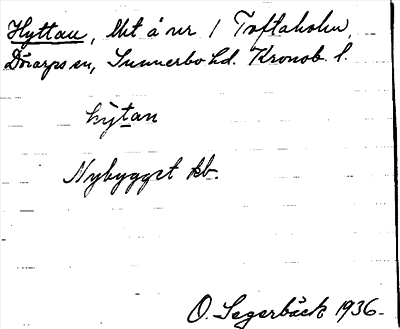 Hyttan, lht å nr 1 Toftaholm,
Dörarps sn, Sunnerbo hd. Kronob. l.
hỳtan
Nybygget kb.
O. Segerbäck 1936.